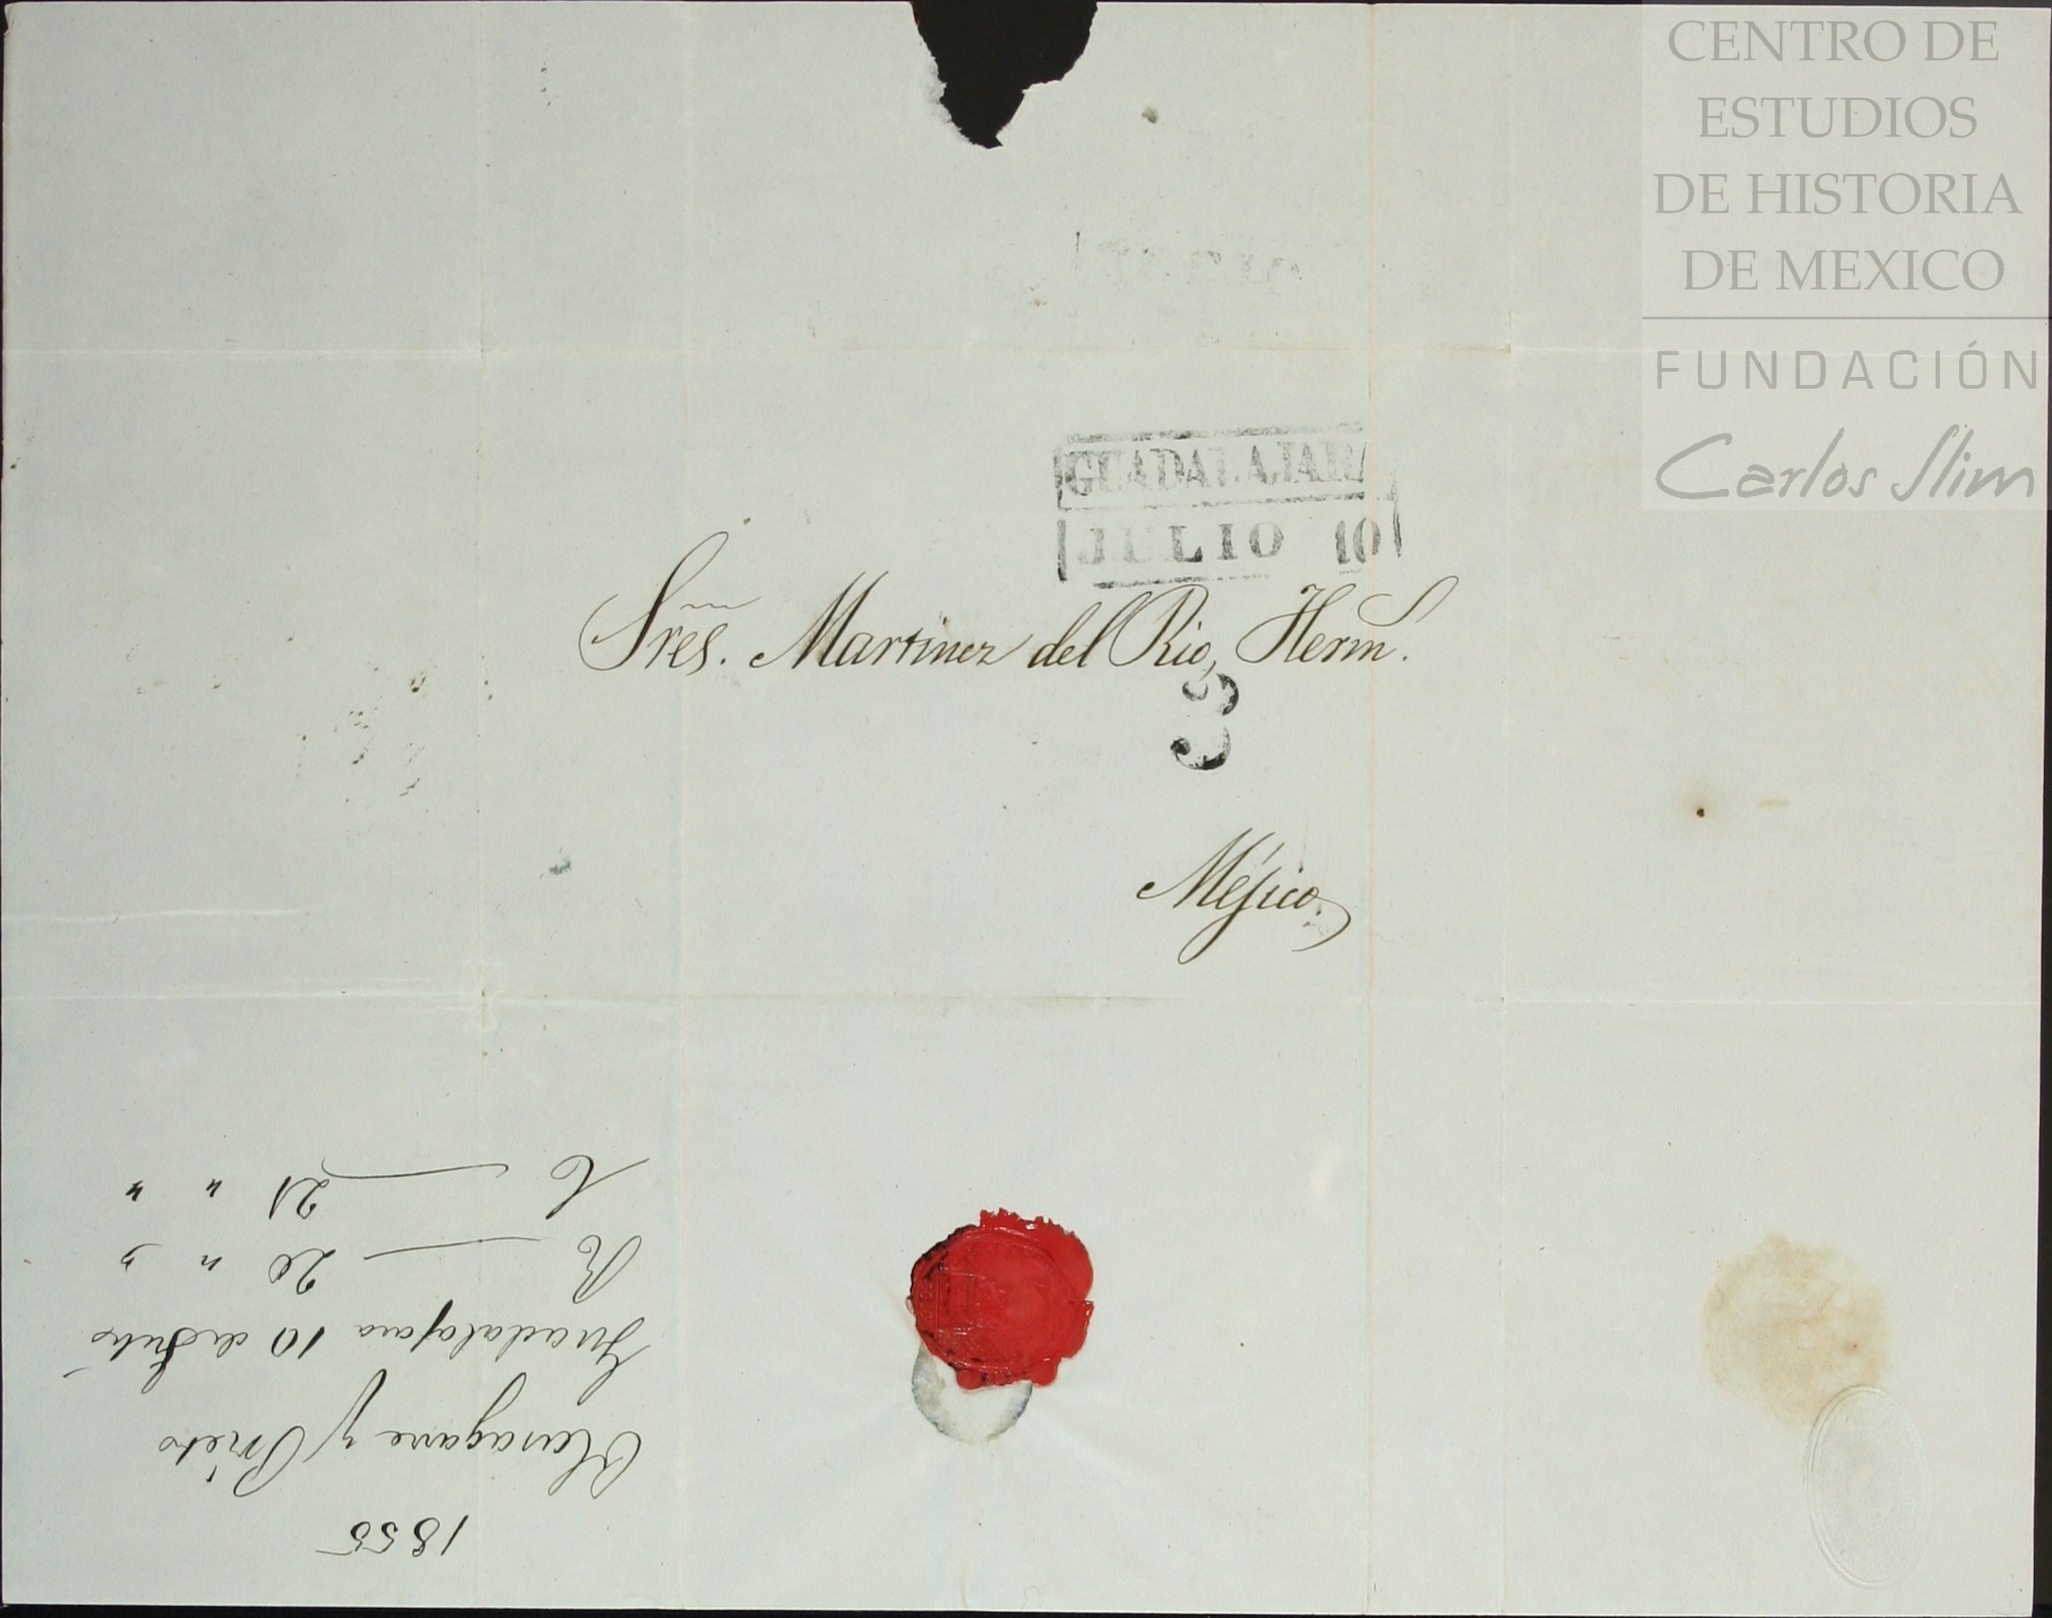 CENTRO DE
ESTUDIOS
DE HISTORIA
DE MEXICO
FUNDACIÓN
Carlos Slim
GUADALAJARA
JULIO 10
Sres. Martinez del Rio, Herm.s
3
Méjico.
1855
Olasagarre y Prieto
Guadalajara 10 de Julio
R 20 " "
C 21 " "